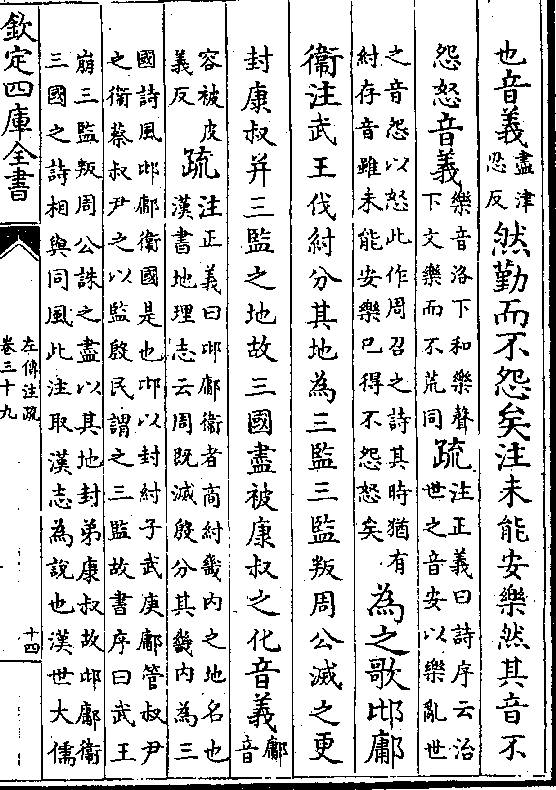 也音義盡津
忍反然勤而不怨矣注未能安樂然其音不
怨怒音義樂音洛下和樂聲
下文樂而不荒同疏注正義曰詩序云治
世之音安以樂亂世
之音怨以怒此作周召之詩其時猶有
紂存音雖未能安樂已得不怨怒矣為之歌邶鄘
衞注武王伐紂分其地為三監三監叛周公滅之更
封康叔并三監之地故三國盡被康叔之化音義鄘
音
容被皮
義反疏注正義曰邶鄘衛者商紂畿内之地名也
漢書地理志云周既滅殷分其畿内為三
國詩風邶鄘衛國是也邶以封紂子武庚鄘管叔尹
之衛蔡叔尹之以監殷民謂之三監故書序曰武王
崩三監叛周公誅之盡以其地封弟康叔故邶鄘衛
三國之詩相與同風此注取漢志為說也漢世大儒
欽定四庫全書
左傳注疏
卷三十九
十四